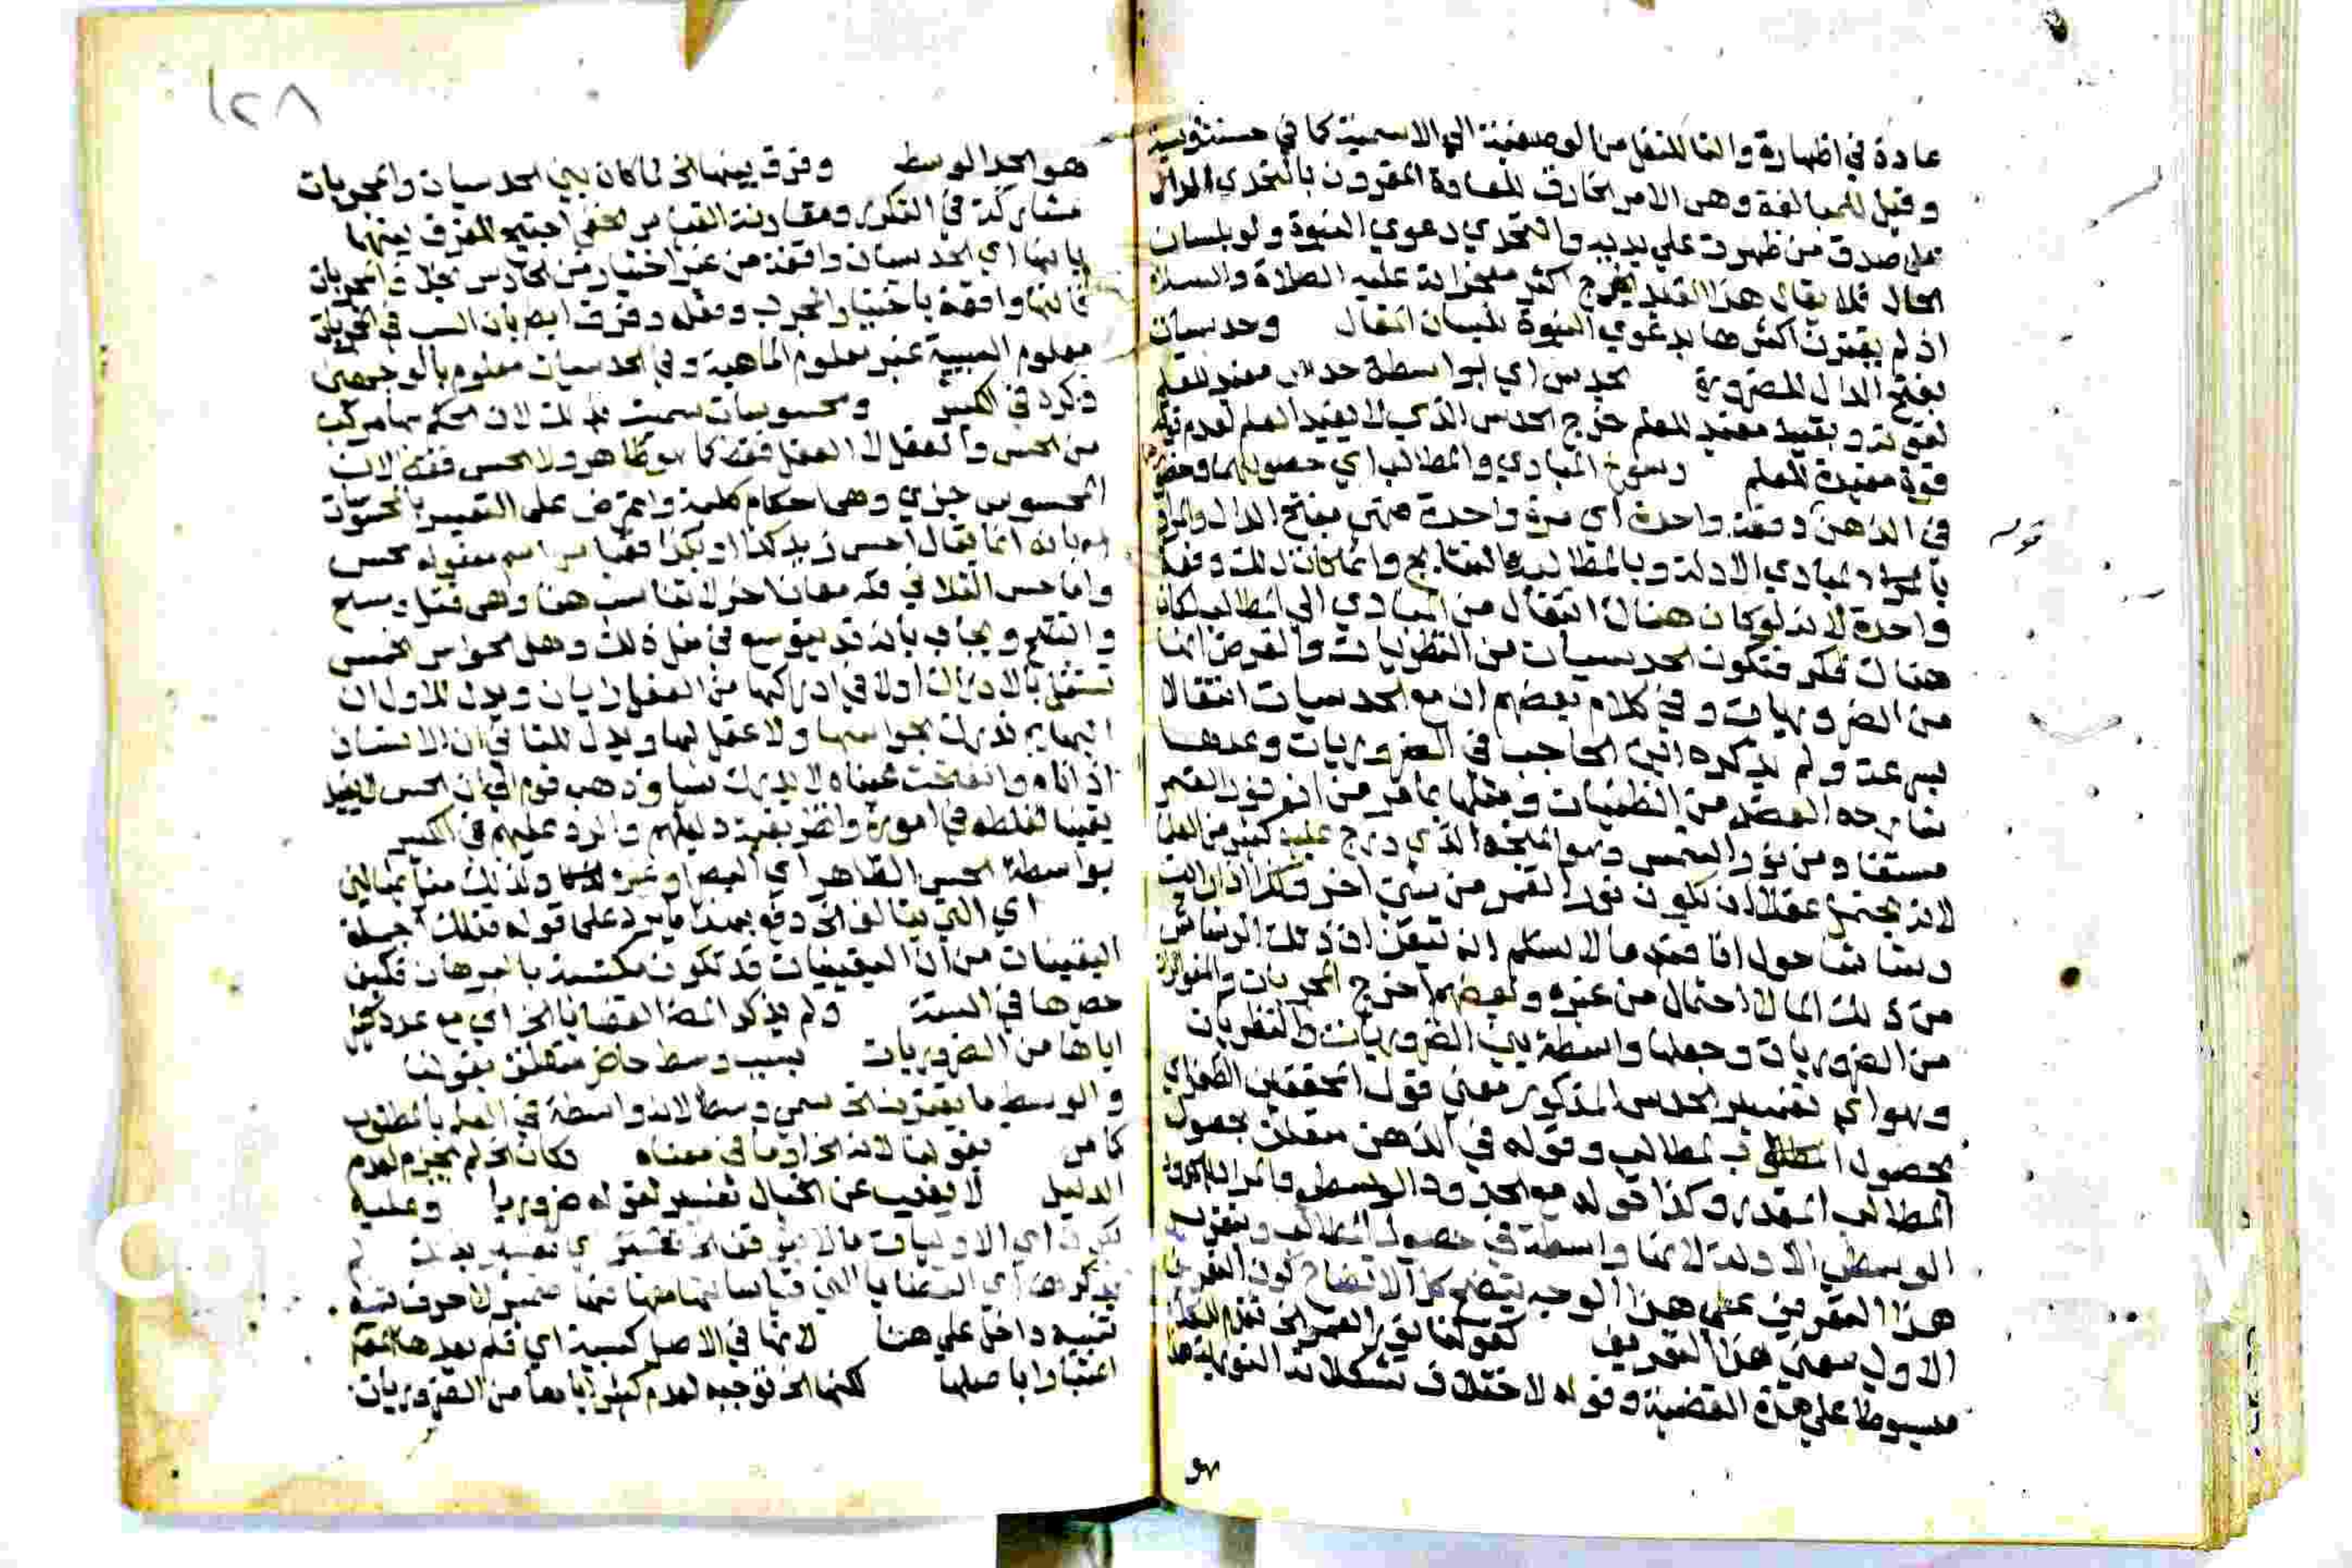 عادة في اظهاره والتا للنقل من الوصفية الي الاسمية كما في
وقيل للمبالغة وهي الامر الخارق للعادة المقرون بالتحدي الدال
على صدق من ظهرت علي يديه والتحدي دعوي النبوة ولو بلسان
الحال فلا يقال هذا القيد يخرج اكثر معجزاته عليه الصلاة والسلام
اذ لم يقترن اكثرها بدعوي النبوة للسان المقال وحدسيات
بفتح الدال للضرورة بحدس اي بواسطة حدس مفيد للعلم
لقوته وبقيد مفيد للعلم خرج الحدس الذي لا يفيد العلم لعدم
قوة مفيدة للعلم رسوخ المبادي والمطالب اي حصولهما
في الذهن دفعة واحدة اي مرة واحدة فهي بفتح الدال والمراد
بالمبادي الادلة وبالمطالب النتايج وانما كان ذلك دفعة
واحدة لانه لو كان هناك انتقال من المبادي الي المطالب لكان
هناك فكر فتكون الحدسيات من النظريات والفرض انها
من الضروريات وفي كلام بعضهم ان مع الحدسيات انتقالا
بسرعة ولم يذكره ابن الحاجب في الضروريات وعدها
شارحه العضد من الظنيات ومثلها بما مر من ان نور القمر
مستفاد من نور الشمس وهو المتجه الذي درج عليه كثير من
لانه يحتمل عقلا ان يكون نور القمر من شي اخر وكذا اذا رايت
حول اناء فيه ما لا نسلم انه تيقن ان ذلك
من ذلك الماء لاحتمال من غيره وبعضهم اخرج المجربات والمتواترات
من الضروريات وجعلها واسطة بين الضروريات والنظريات
وهو اي تفسير الحدس المذكور معني قول المحققين
بحصول المطالب وقوله في الذهن متعلق بحصول
المطالب المقدر وكذا قوله مع الحدود الوسطي والمراد بالحدود
الوسطي الادلة لانها واسطة في حصول المطالب
هذا التعريف علي هذا الوجه يتضح كل الاتضاح كون التعريف
الاول بمعني هذا التعريف كقولنا نور القمر الخ تقدم الكلام
مبسوطا علي هذه القضية وقوله لاختلاف تشكلاته النورية
هو
١٢٨
هو الحد الوسط وفرق بينهما الخ لما كان بين الحدسيات والمجربات
مشاركة في التكرر ومقارنة القياس الخفي احتيج للفرق بينهما
بانها اي الحدسيات واقعة من غير اختيار من الحادس بخلاف المجربات
فانها واقعة باختيار المجرب وفعله وفرق ايضا بان السبب في المجربات
معلوم السببية غير معلوم الماهية وفي الحدسيات معلوم بالوجهين
ذكره في الكبير ومحسوسات سميت بذلك لان الحكم بها مركب
من الحس والعقل لا العقل فقط كما هو ظاهر ولا الحس فقط لان
المحسوس جزي وهي احكام كلية واعترض على التعبير بالمحسوسات
بانه انما يقال احس زيد كذا او بكذا فقياس اسم مفعوله محس
واما حس الثلاثي فله معان اخر لا تناسب هنا وهي قتل ومسح
والقي ويجاب بانه قد يتوسع في مثل ذلك وهل الحواس الخمس
تستقل بالادراك او لا في ادراكها من العقل رايان ويدل للاول ان
البهايم تدرك بحواسها ولا عقل لها ويدل للثاني ان الانسان
اذا نام وانفتحت عيناه لا يدرك شيا وذهب قوم الي ان الحس لا يفيد
يقينا لغلطه في امور وانظر بقية دليلهم والرد عليهم في الكبير
بواسطة الحس الظاهر اي البصر او غيره ولذلك مثل بمثالين
اي التي يتالف الخ دفع بهذا ما يرد على قوله فتلك جملة
اليقينيات من ان اليقينيات قد تكون مكتسبة بالبرهان فكيف
حصرها في الستة ولم يذكر المص القضايا الخ اي مع عد
اياها من الضروريات بسبب وسط حاضر متعلق بقولنا
والوسط ما يقترن الخ سمي وسطا لانه واسطة في العلم بالمطلوب
كما مر بقولنا لانه الخ او ما في معناه فكان الخ لم يجزم لعدم
الدليل لا يغيب عن الخيال تفسير لقوله ضروريا وعليه
تكون اي الاوليات مالا يتوقف الخ تفسير لم
يذكر هنا اي القضايا التي قياساتها معها
تنبيه داخل علي هنا لانها في الاصل كسبية اي فلم يعدها
اعتبارا باصلها لكنها الخ توجيه لعدم كثير اياها من الضروريات